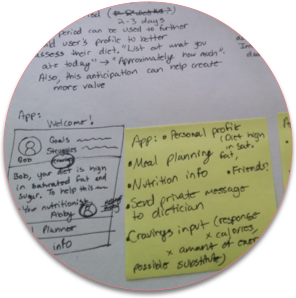 2-3 days
period can be used to further
user's profile to better
assess their diet. "List out what you
ate today" → "Approximately how much".
Also, this anticipation can help create
more value
App:
Welcome!
Goals
Struggles
Bob
Bob, your diet is high
in saturated fat and
sugar. To help this
Your nutritionist
Abby
Planner
info
App: • Personal profile
(Diet high
in sat.
fat,
• Meal planning
• Nutrition info
• Friends?
• Send private message
to dietician
• Cravings input (response
x calories,
x amount of exer
possible substitute)